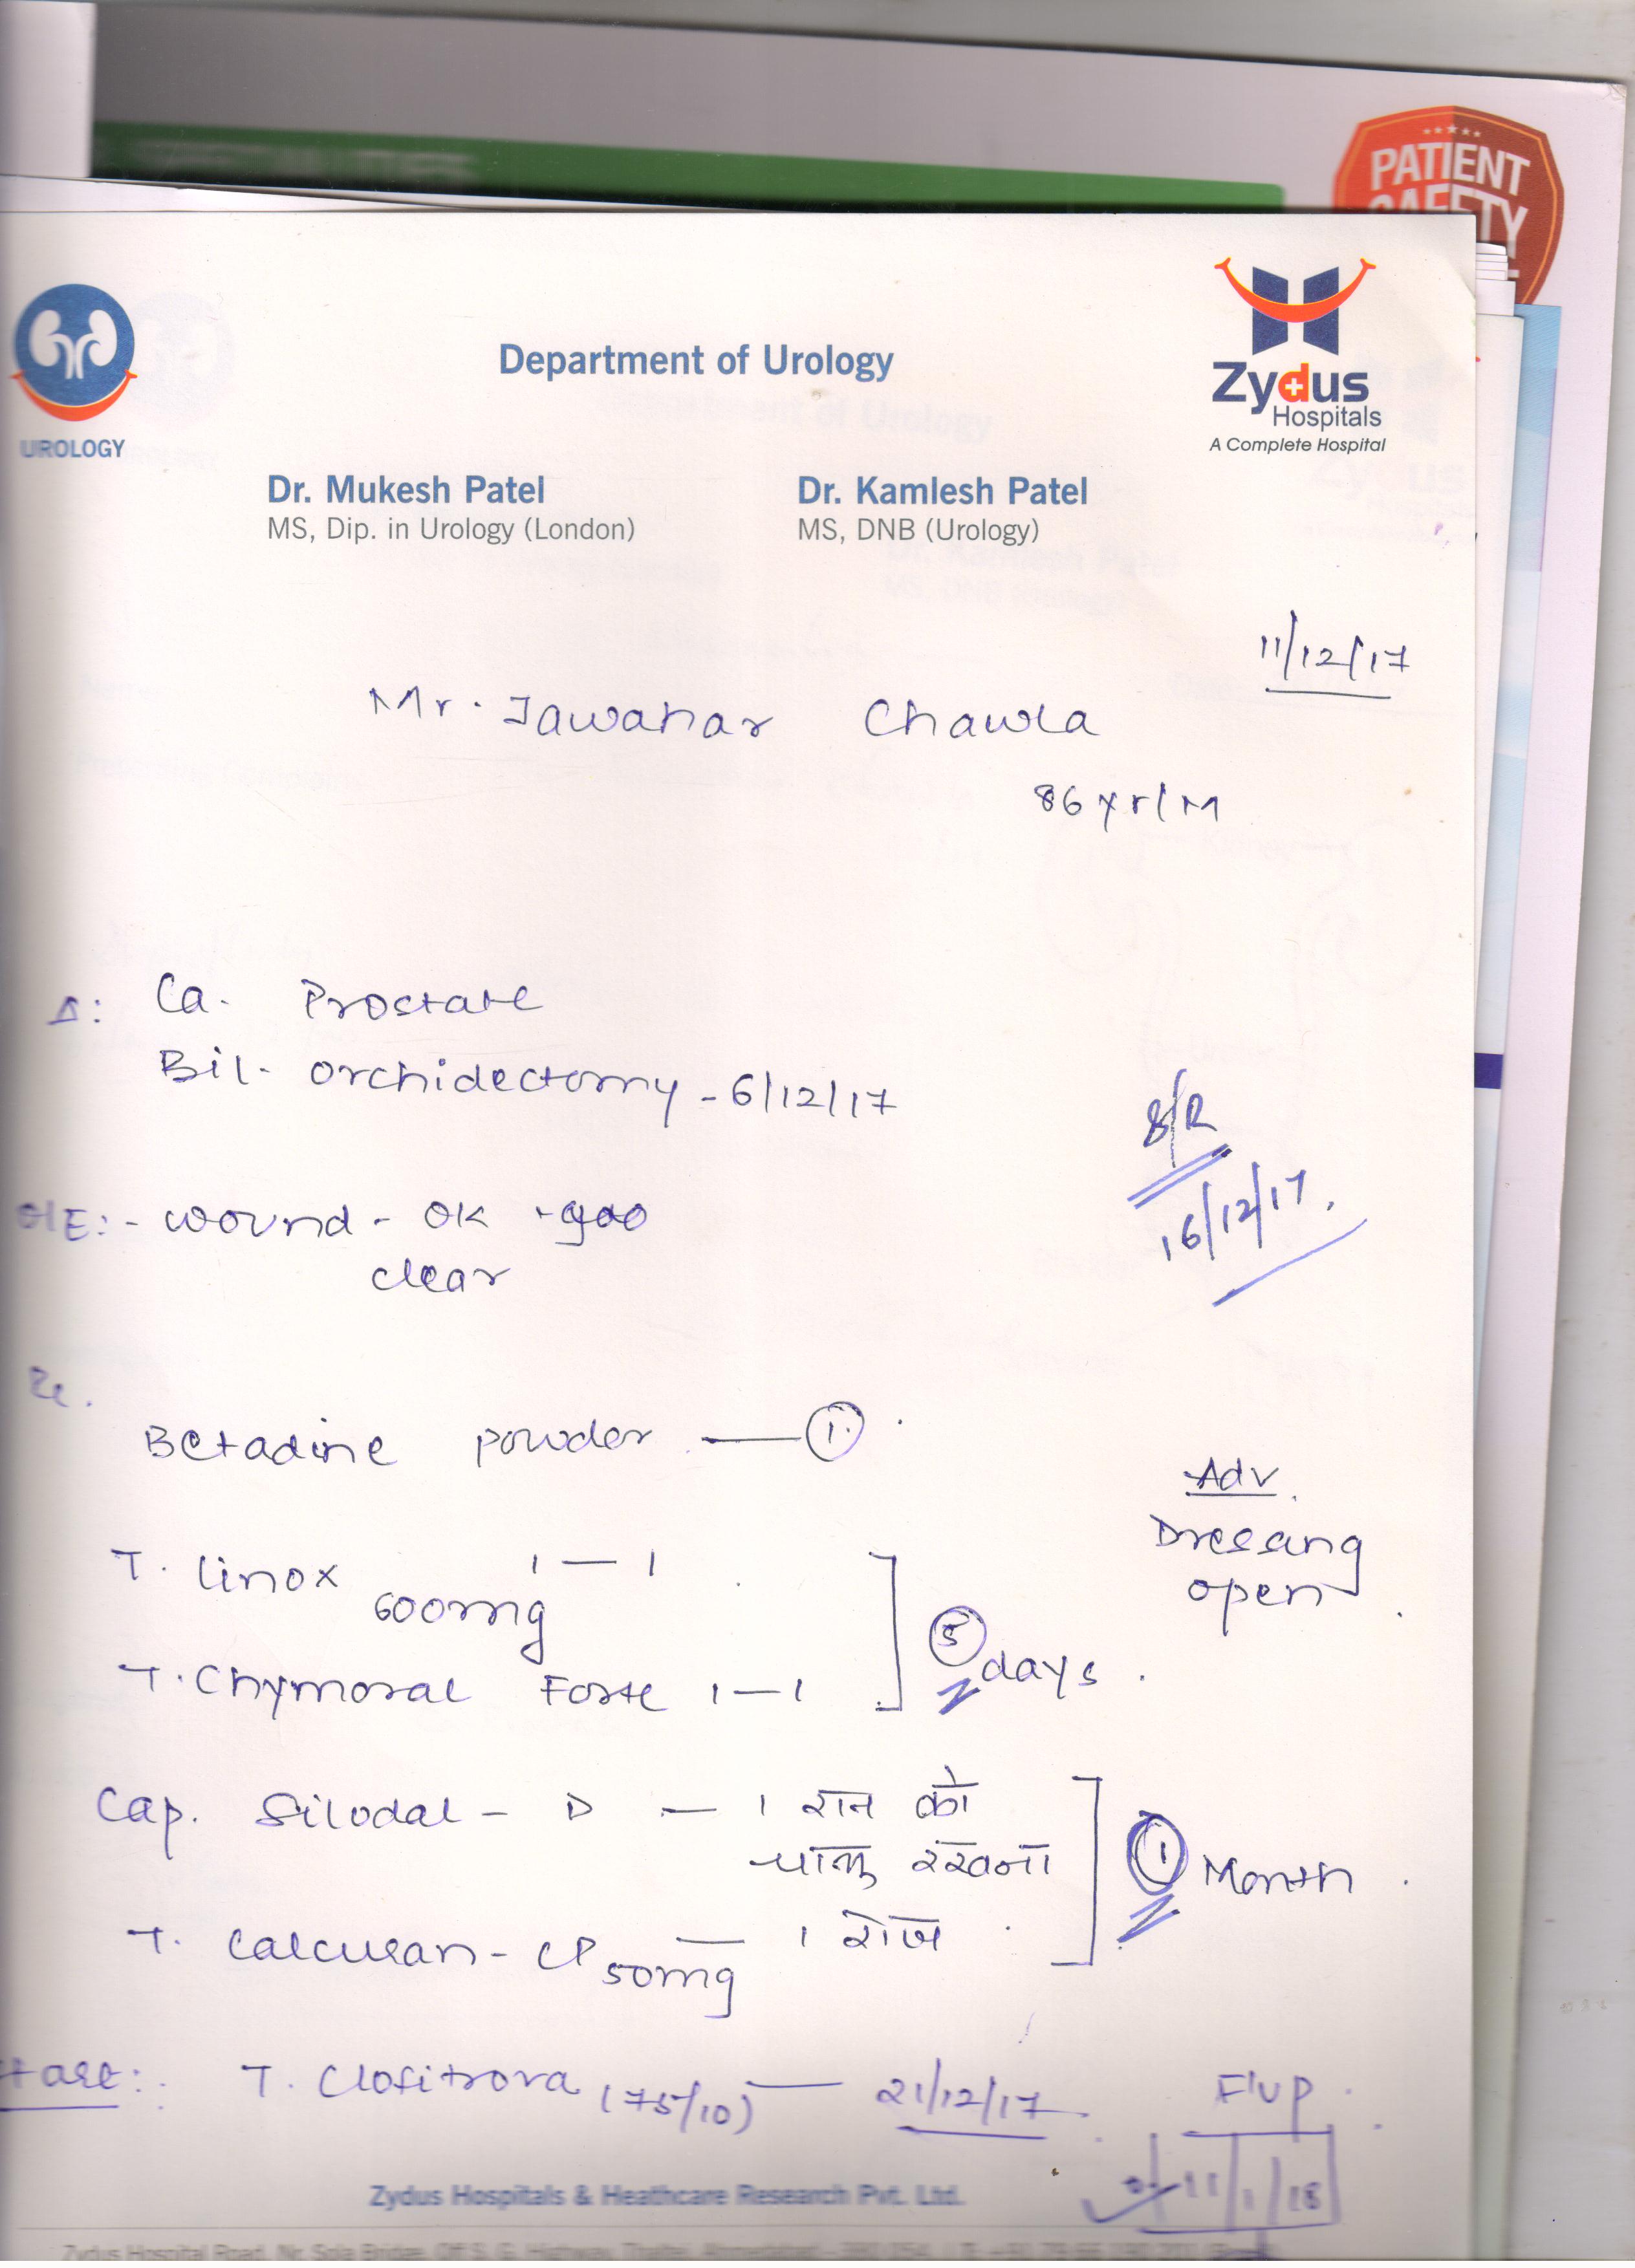 PATIENT
SAFETY
UROLOGY
Department of Urology
Zydus
Hospitals
A Complete Hospital
Dr. Mukesh Patel
MS, Dip. in Urology (London)
Dr. Kamlesh Patel
MS, DNB (Urology)
11/12/17
Mr. Jawahar Chawla
86 yr/M
Δ: Ca. Prostate
Bil. orchidectomy - 6/12/17
S/R
16/12/17.
O/E:- wound - OK
clear
Rx.
Betadine powder — 1
Adv.
Dressing
open
T. linox 600mg 1 — 1
T. Chymoral Forte 1 — 1
5 days
Cap. Silodal - D — 1 रात को
चालु रखना
1 Month
T. Calcusan - CP 50mg — 1 रोज
T. Clofitrova (75/10) — 21/12/17
F'up
11/1/18
Zydus Hospitals & Heathcare Research Pvt. Ltd.